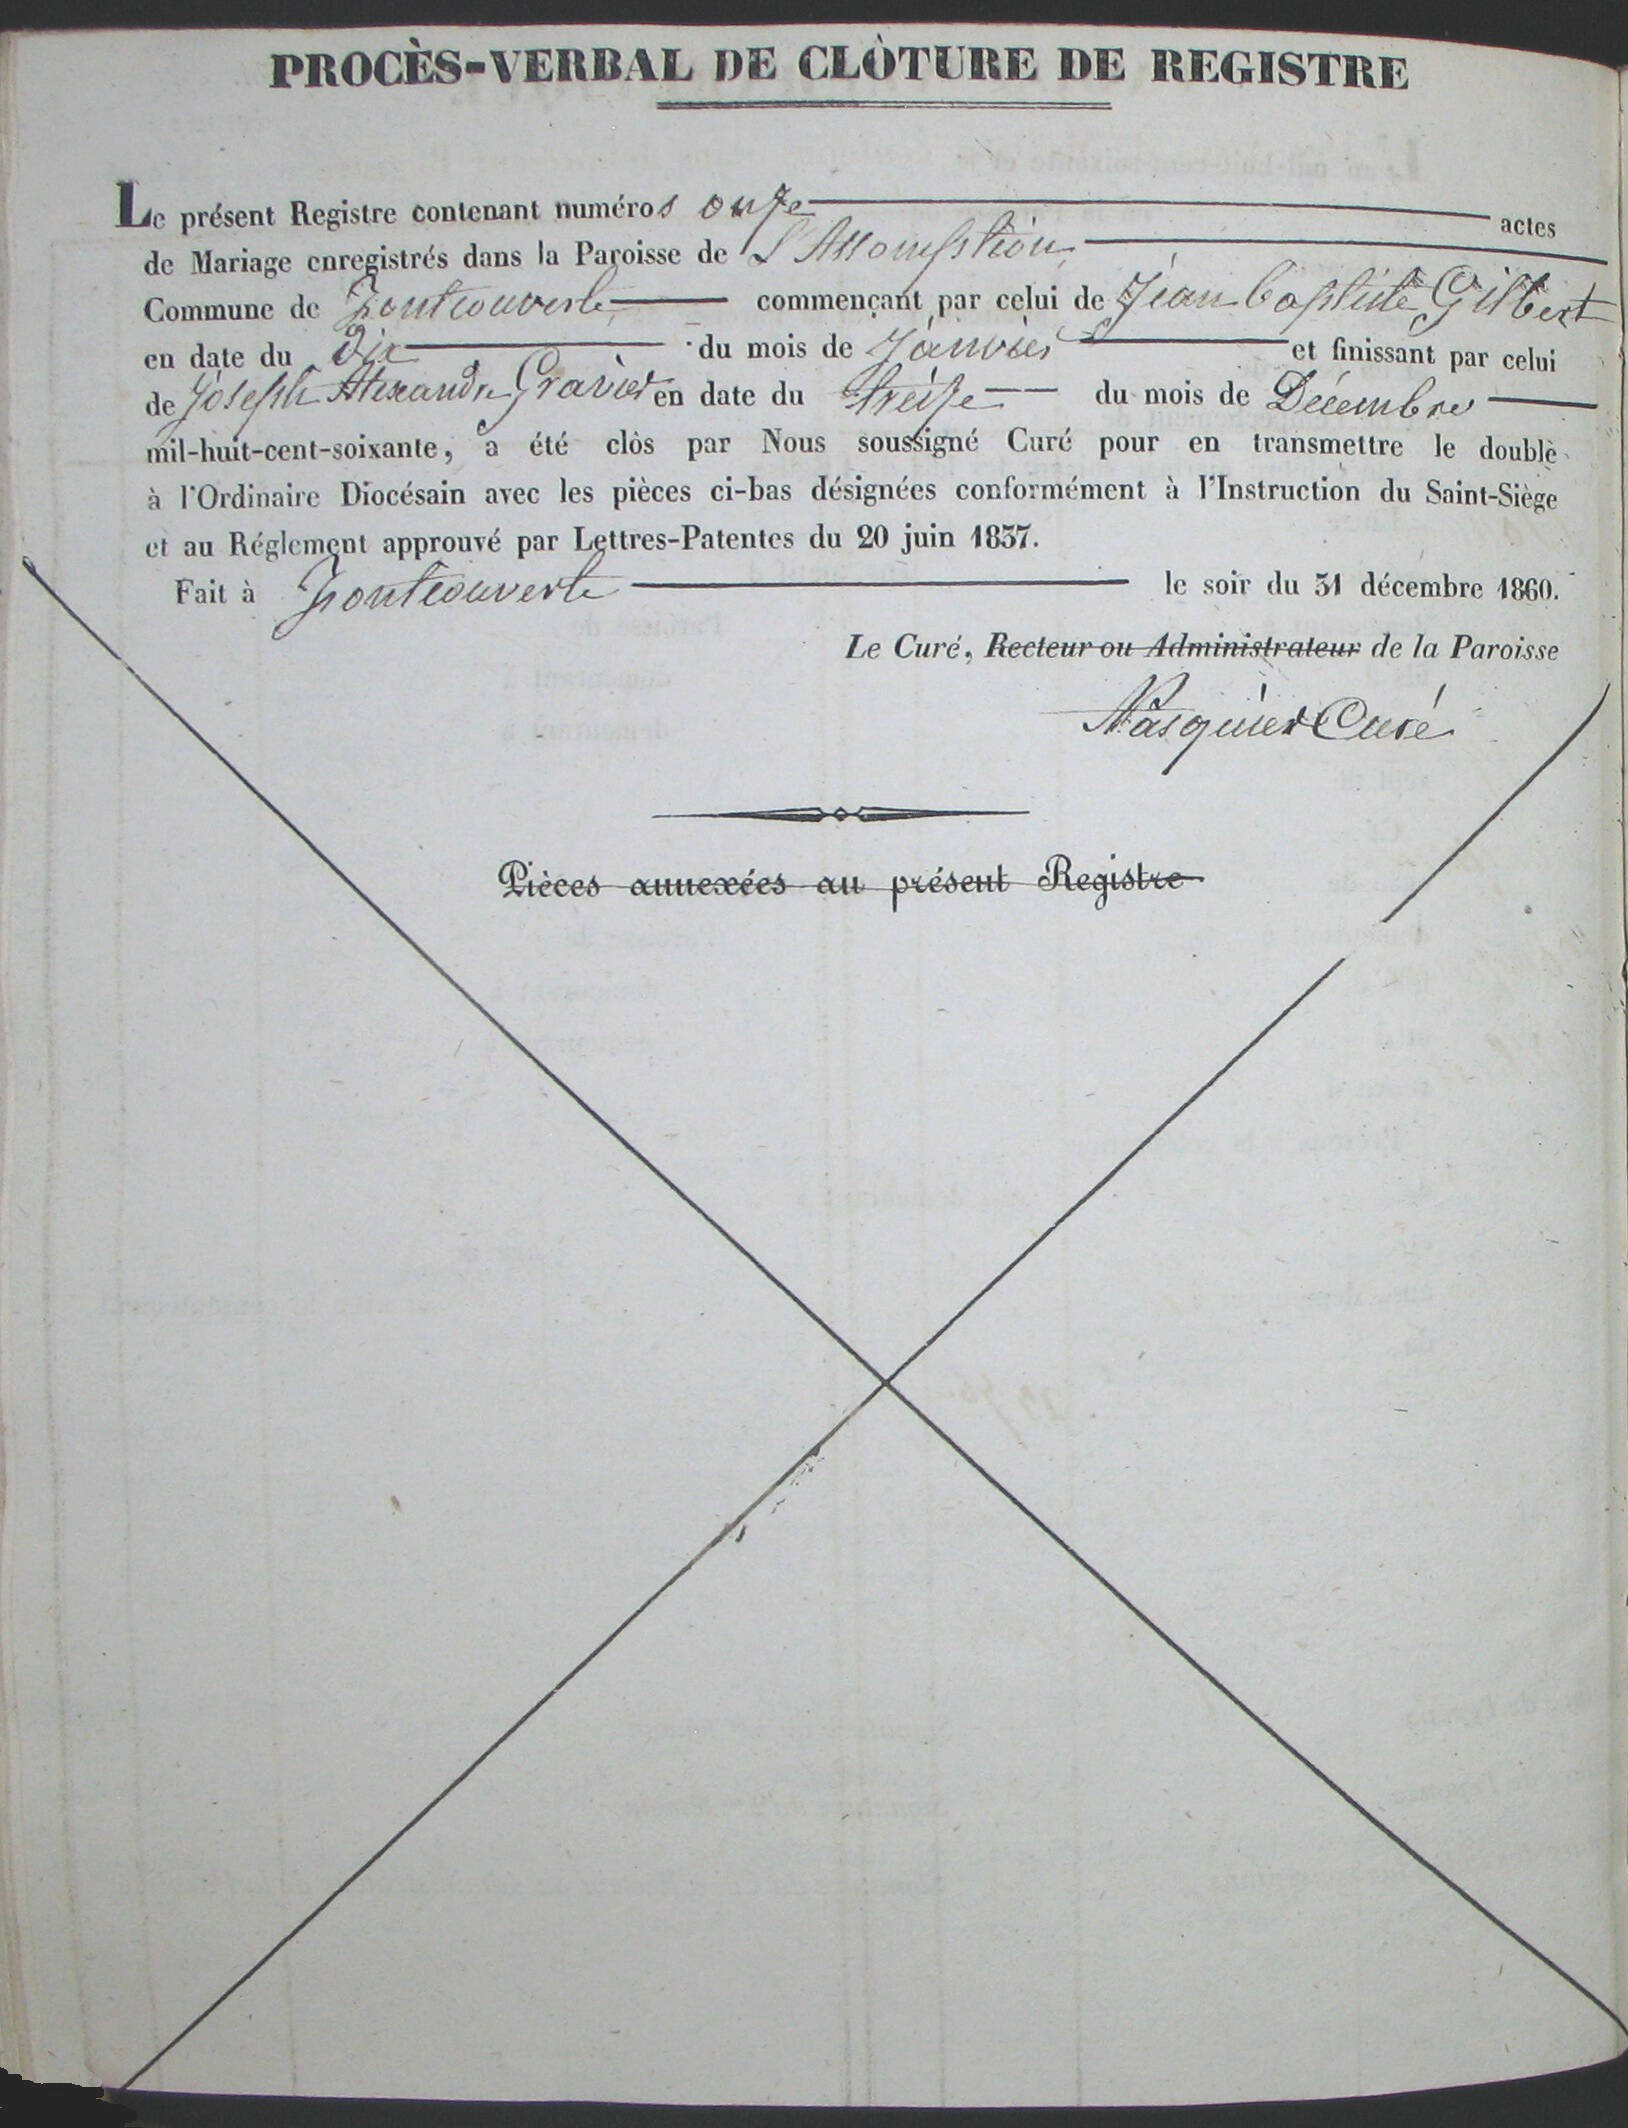 PROCÈS-VERBAL DE CLÒTURE DE REGISTRE
Le présent Registre contenant numéros onze actes
de Mariage enregistrés dans la Paroisse de L'Assomption
Commune de Fontcouverte commençant par celui de Jean Baptiste Gilbert
en date du Dix du mois de Janvier et finissant par celui
de Joseph Alexandre Gravier en date du treize du mois de Décembre
mil-huit-cent-soixante, a été clòs par Nous soussigné Curé pour en transmettre le double
à l'Ordinaire Diocésain avec les pièces ci-bas désignées conformément à l'Instruction du Saint-Siège
et au Réglement approuvé par Lettres-Patentes du 20 juin 1837.
Fait à Fontcouverte le soir du 31 décembre 1860.
Le Curé, Recteur ou Administrateur de la Paroisse
Pasquier Curé
Pièces annexées au présent Registre